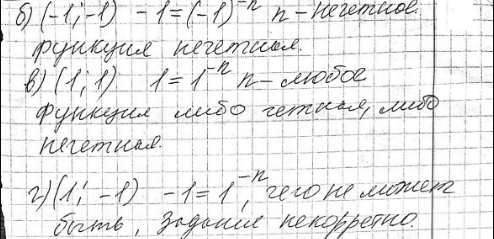 б) (-1; -1) -1 = (-1)^{-n} n - нечетное.
функция нечетная.
в) (1; 1) 1 = 1^{-n} n - любое
функция либо четная, либо
нечетная.
г) (1; -1) -1 = 1^{-n}, чего не может
быть, задания некорретно.